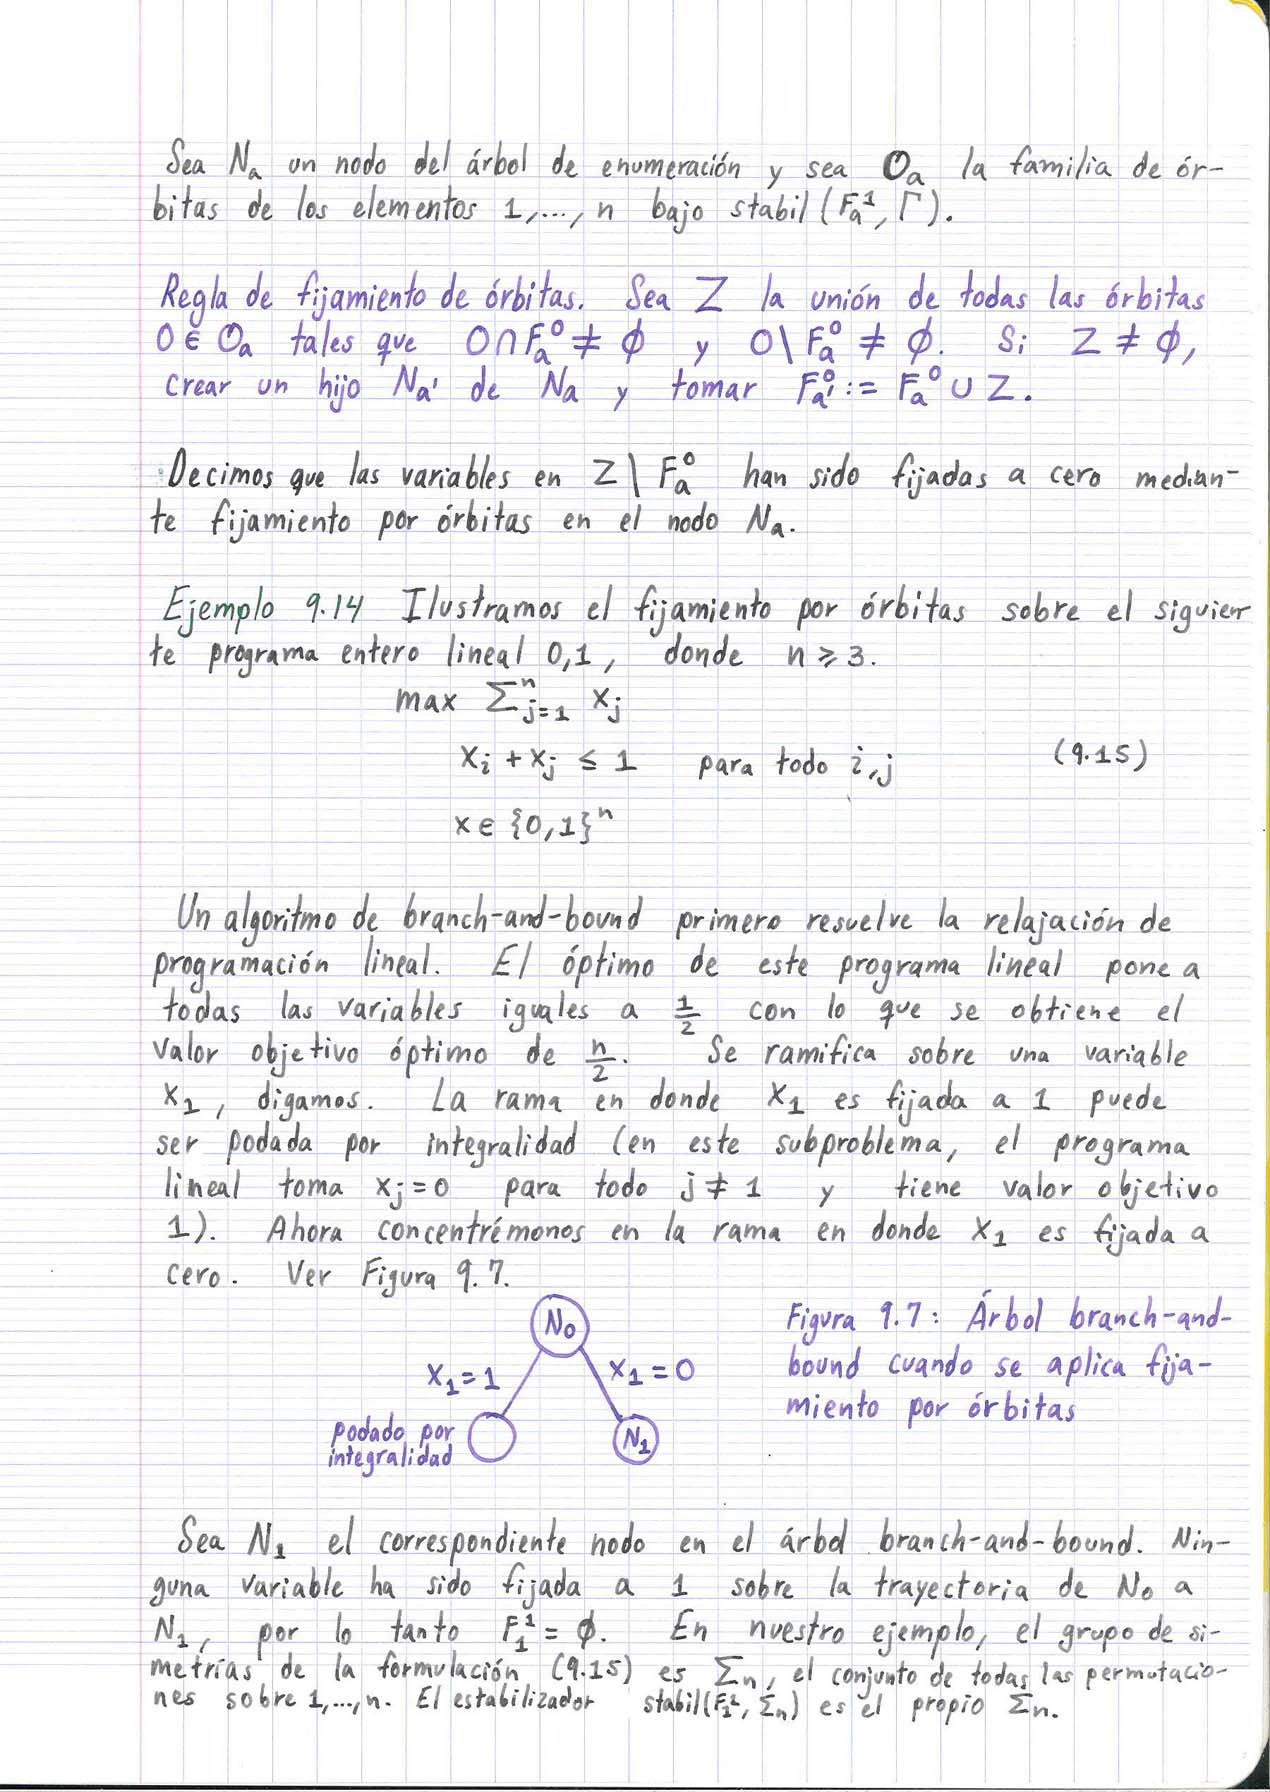 Sea Nₐ un nodo del árbol de enumeración y sea Oₐ la familia de ór-
bitas de los elementos 1,...,n bajo stabil(Fₐ¹, Γ).
Regla de fijamiento de órbitas. Sea Z la unión de todas las órbitas
O ∈ Oₐ tales que O∩Fₐ⁰ ≠ ∅ y O\Fₐ⁰ ≠ ∅. Si Z ≠ ∅,
crear un hijo Nₐ' de Nₐ y tomar Fₐ'⁰ := Fₐ⁰ ∪ Z.
Decimos que las variables en Z \ Fₐ⁰ han sido fijadas a cero median-
te fijamiento por órbitas en el nodo Nₐ.
Ejemplo 9.14 Ilustramos el fijamiento por órbitas sobre el siguien-
te programa entero lineal 0,1, donde n ≥ 3.
max ∑ⁿⱼ₌₁ xⱼ
xᵢ + xⱼ ≤ 1 para todo i,j (9.15)
x ∈ {0,1}ⁿ
Un algoritmo de branch-and-bound primero resuelve la relajación de
programación lineal. El óptimo de este programa lineal pone a
todas las variables iguales a 1/2 con lo que se obtiene el
valor objetivo óptimo de n/2. Se ramifica sobre una variable
x₁, digamos. La rama en donde x₁ es fijada a 1 puede
ser podada por integralidad (en este subproblema, el programa
lineal toma xⱼ=0 para todo j ≠ 1 y tiene valor objetivo
1). Ahora concentrémonos en la rama en donde x₁ es fijada a
cero. Ver Figura 9.7.
N₀
x₁=1 x₁=0
podado por
integralidad
N₁
Figura 9.7: Árbol branch-and-
bound cuando se aplica fija-
miento por órbitas
Sea N₁ el correspondiente nodo en el árbol branch-and-bound. Nin-
guna variable ha sido fijada a 1 sobre la trayectoria de N₀ a
N₁, por lo tanto F₁¹ = ∅. En nuestro ejemplo, el grupo de si-
metrías de la formulación (9.15) es Σₙ, el conjunto de todas las permutacio-
nes sobre 1,...,n. El estabilizador stabil(F₁¹, Σₙ) es el propio Σₙ.